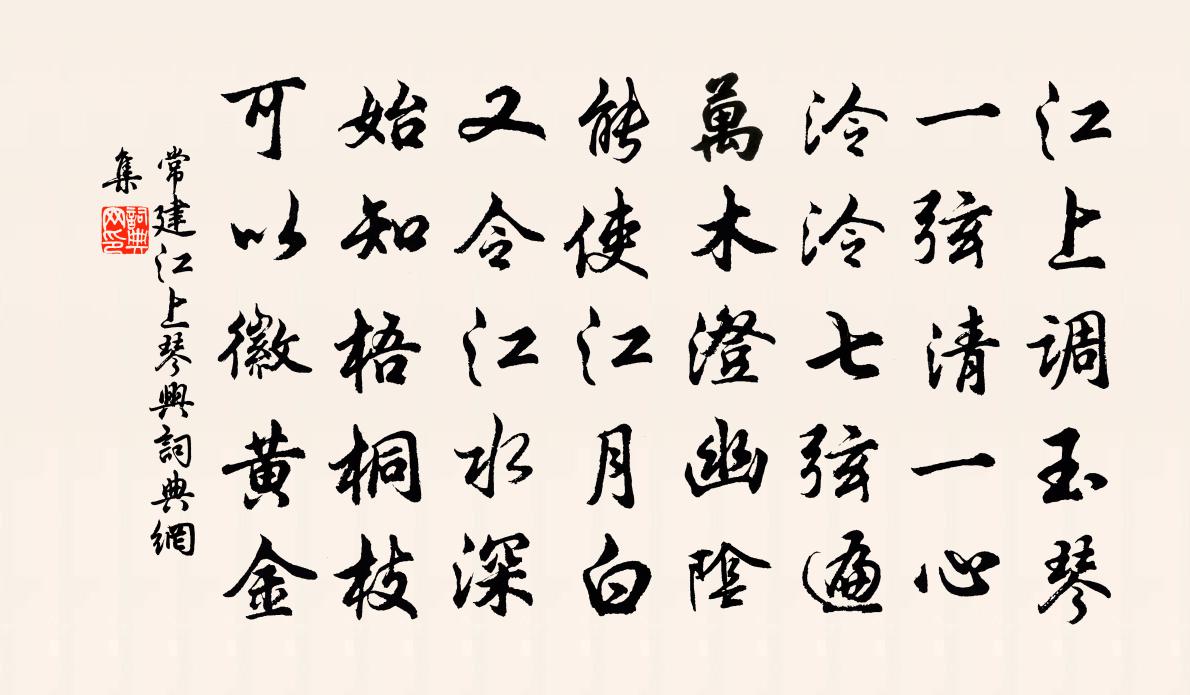 江上调玉琴
一弦清一心
泠泠七弦遍
萬木澄幽陰
能使江月白
又令江水深
始知梧桐枝
可以徽黄金
常建江上琴興詞典網
集
詞典
网印